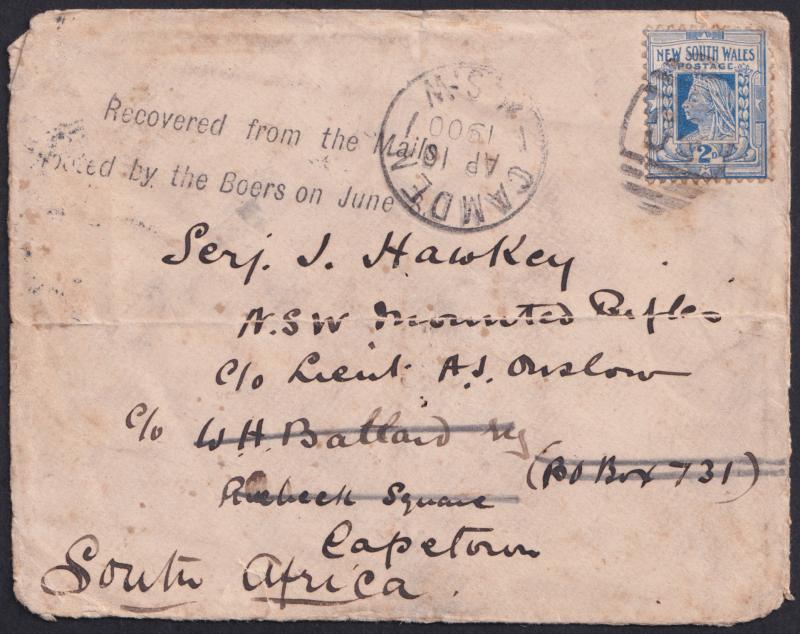 NEW SOUTH WALES
POSTAGE
2D
CAMDEN
AP 16
1900
N.S.W
Recovered from the Mails
looted by the Boers on June
Serj. J. Hawkey
N.S.W Mounted Rifles
c/o Lieut A.J. Onslow
c/o W.H. Ballard
(PO Box 731)
Square
Capetown
South Africa